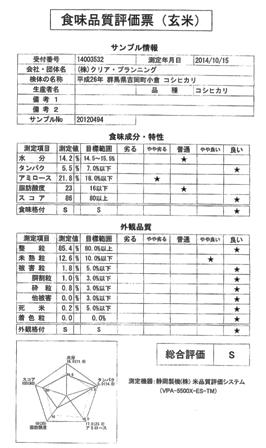 食味品質評価票（玄米）
サンプル情報
受付番号 14003532 測定年月日 2014/10/15
会社・団体名 (株)クリア・プランニング
検体の名称 平成26年 群馬県吉岡町小倉 コシヒカリ
生産者名 品種 コシヒカリ
備考1
備考2
サンプルNo 20120494
食味成分・特性
測定項目 測定値 目標範囲 劣る やや劣る 普通 やや良い 良い
水分 14.2% 14.5～15.5% ★
タンパク 5.5% 7.0%以下 ★
アミロース 21.8% 18.0%以下 ★
脂肪酸度 23 16以下 ★
スコア 86 80以上 ★
食味格付 S S ★
外観品質
測定項目 測定値 目標範囲 劣る やや劣る 普通 やや良い 良い
整粒 85.4% 80.0%以上 ★
未熟粒 12.6% 10.0%以下 ★
被害粒 1.8% 5.0%以下 ★
胴割粒 1.0% 3.0%以下 ★
砕粒 0.8% 3.0%以下 ★
他被害 0.0% 3.0%以下 ★
死米 0.2% 5.0%以下 ★
着色粒 0.0% 0.0% ★
外観格付 S S ★
総合評価 S
水分
スコア
タンパク
脂肪酸度
アミロース
測定機器：静岡製機(株) 米品質評価システム
(VPA-5500X-ES-TM)